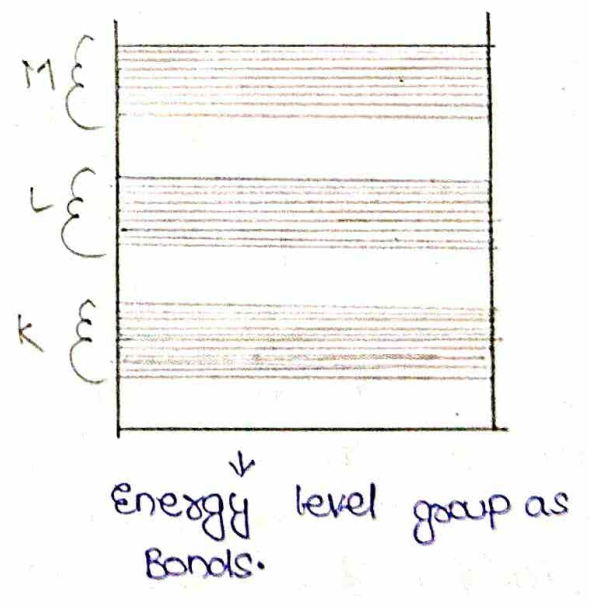 M
L
K
Energy level group as
Bonds.